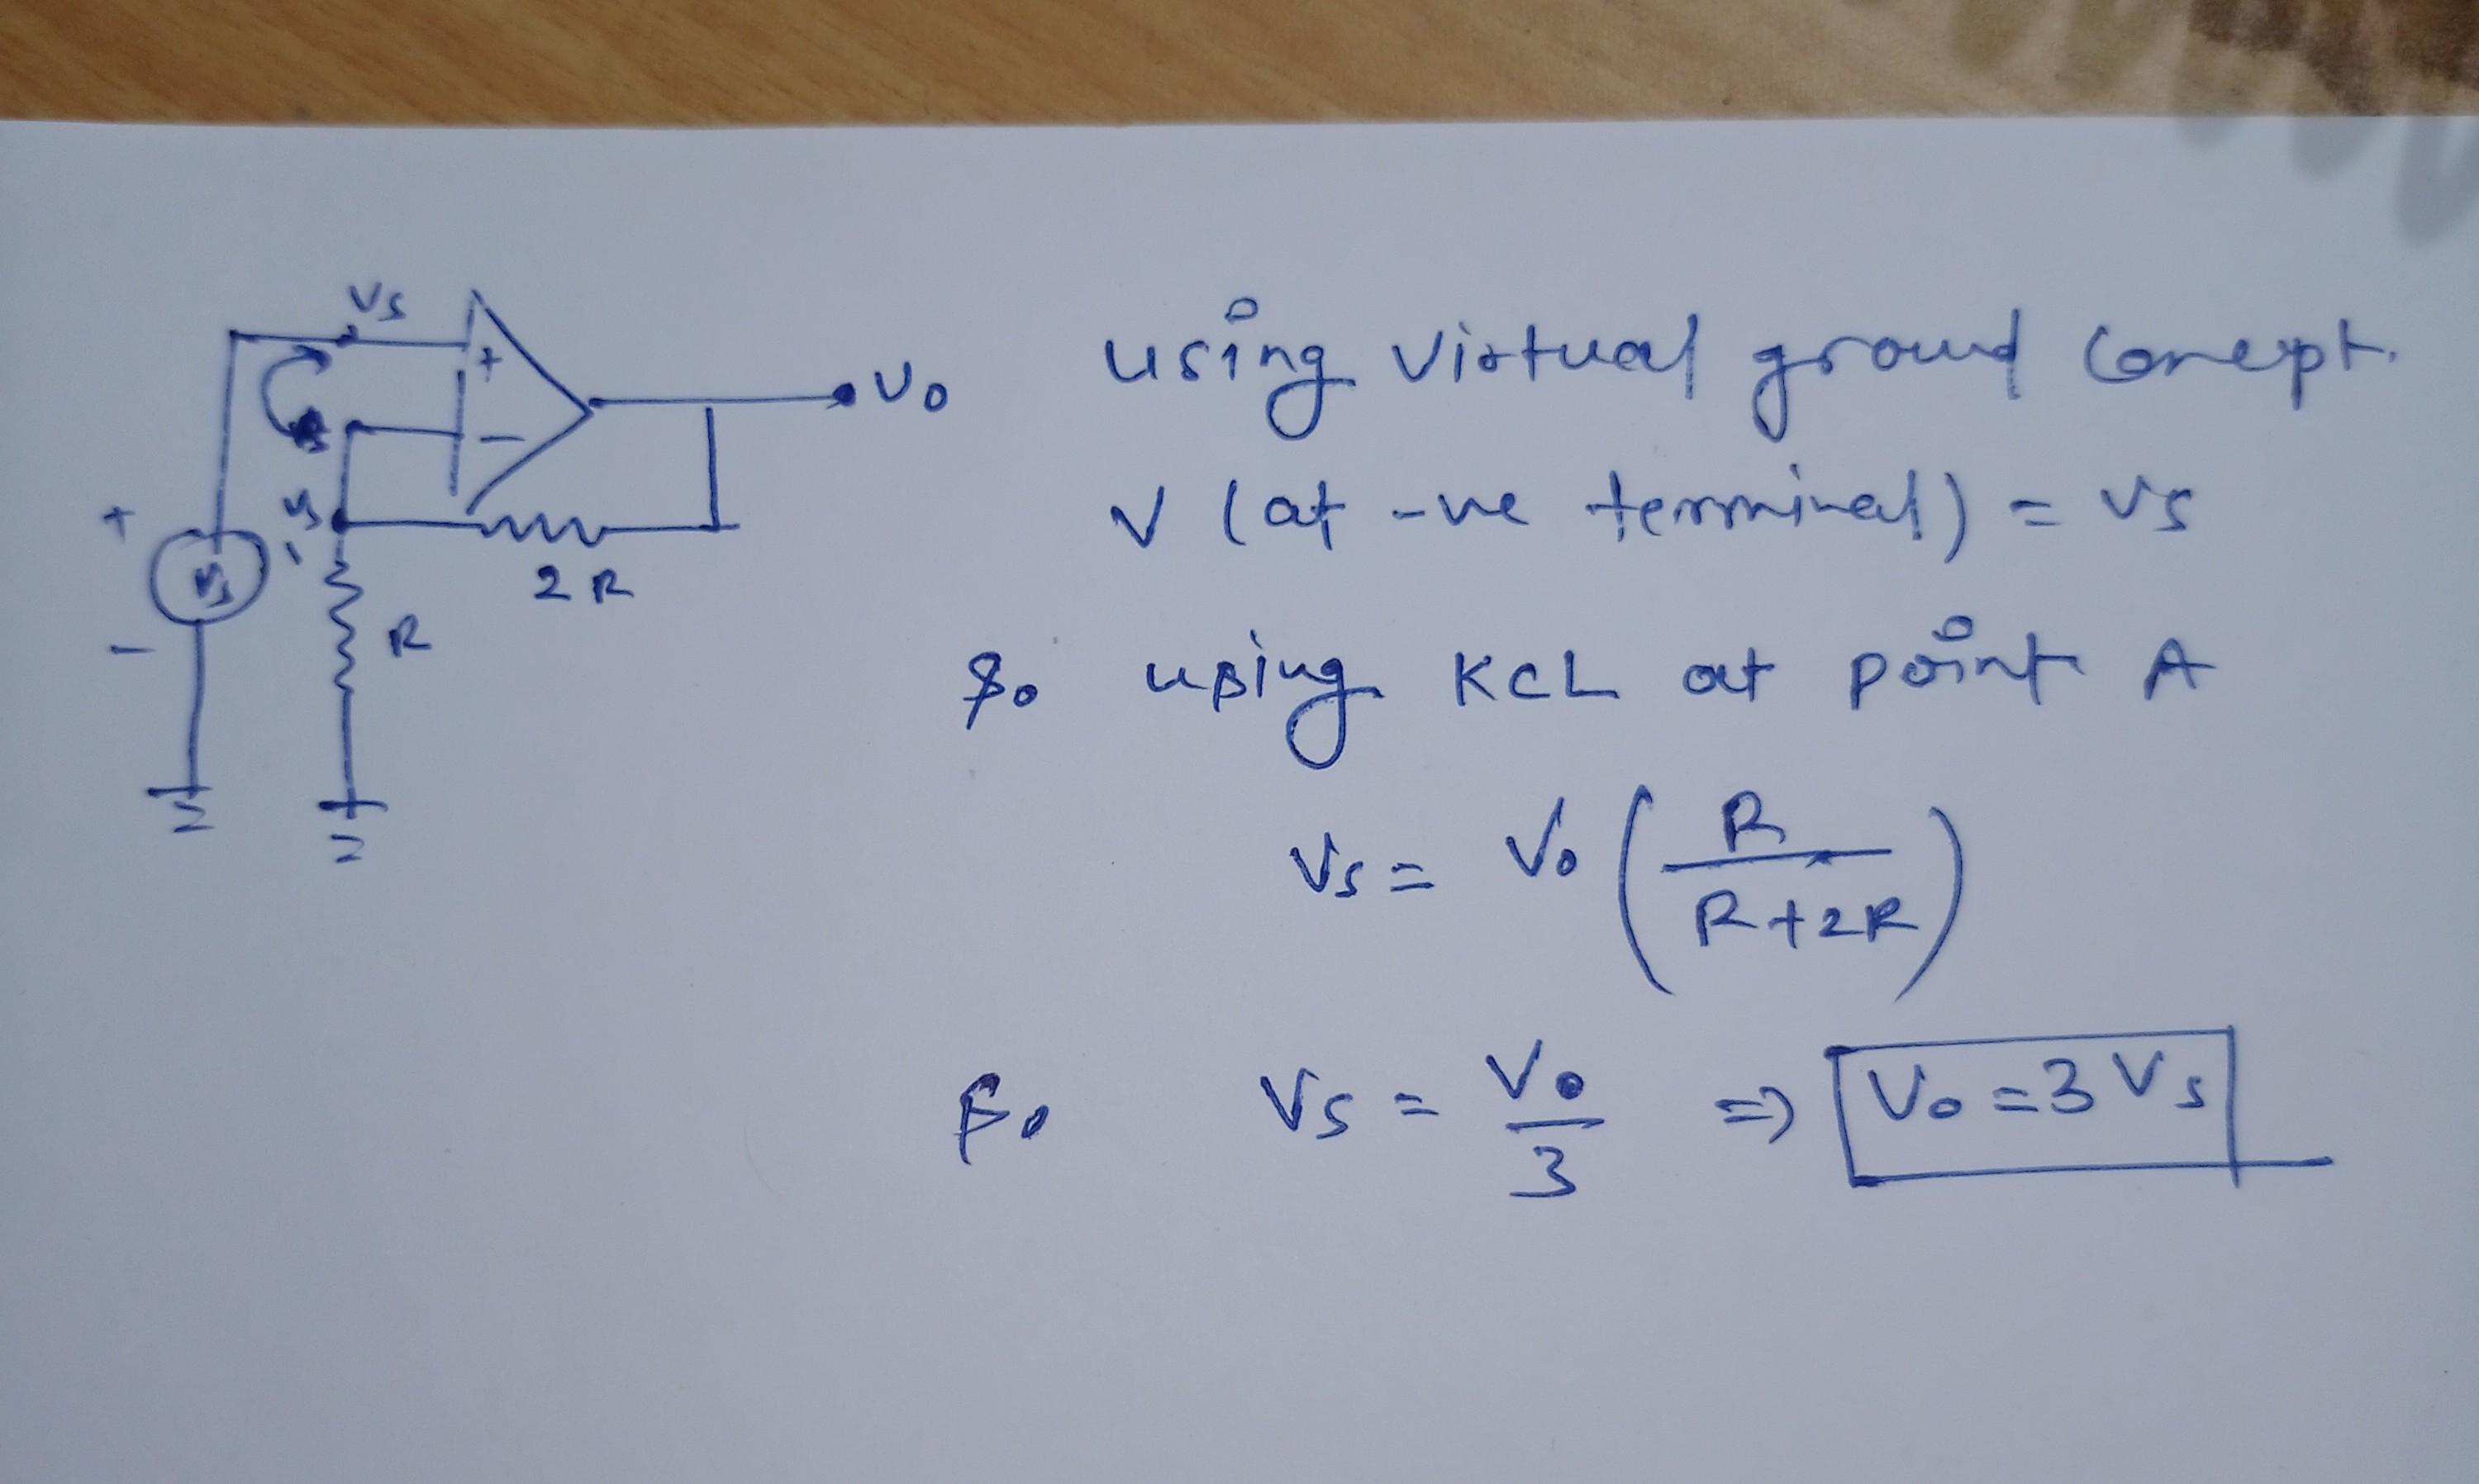 Vs
+
−
Vo
Vs
+
Vs
−
2R
R
using virtual ground concept.
V (at -ve terminal) = Vs
So using KCL at point A
Vs = Vo (R / R+2R)
So Vs = Vo / 3 ⇒ Vo = 3 Vs